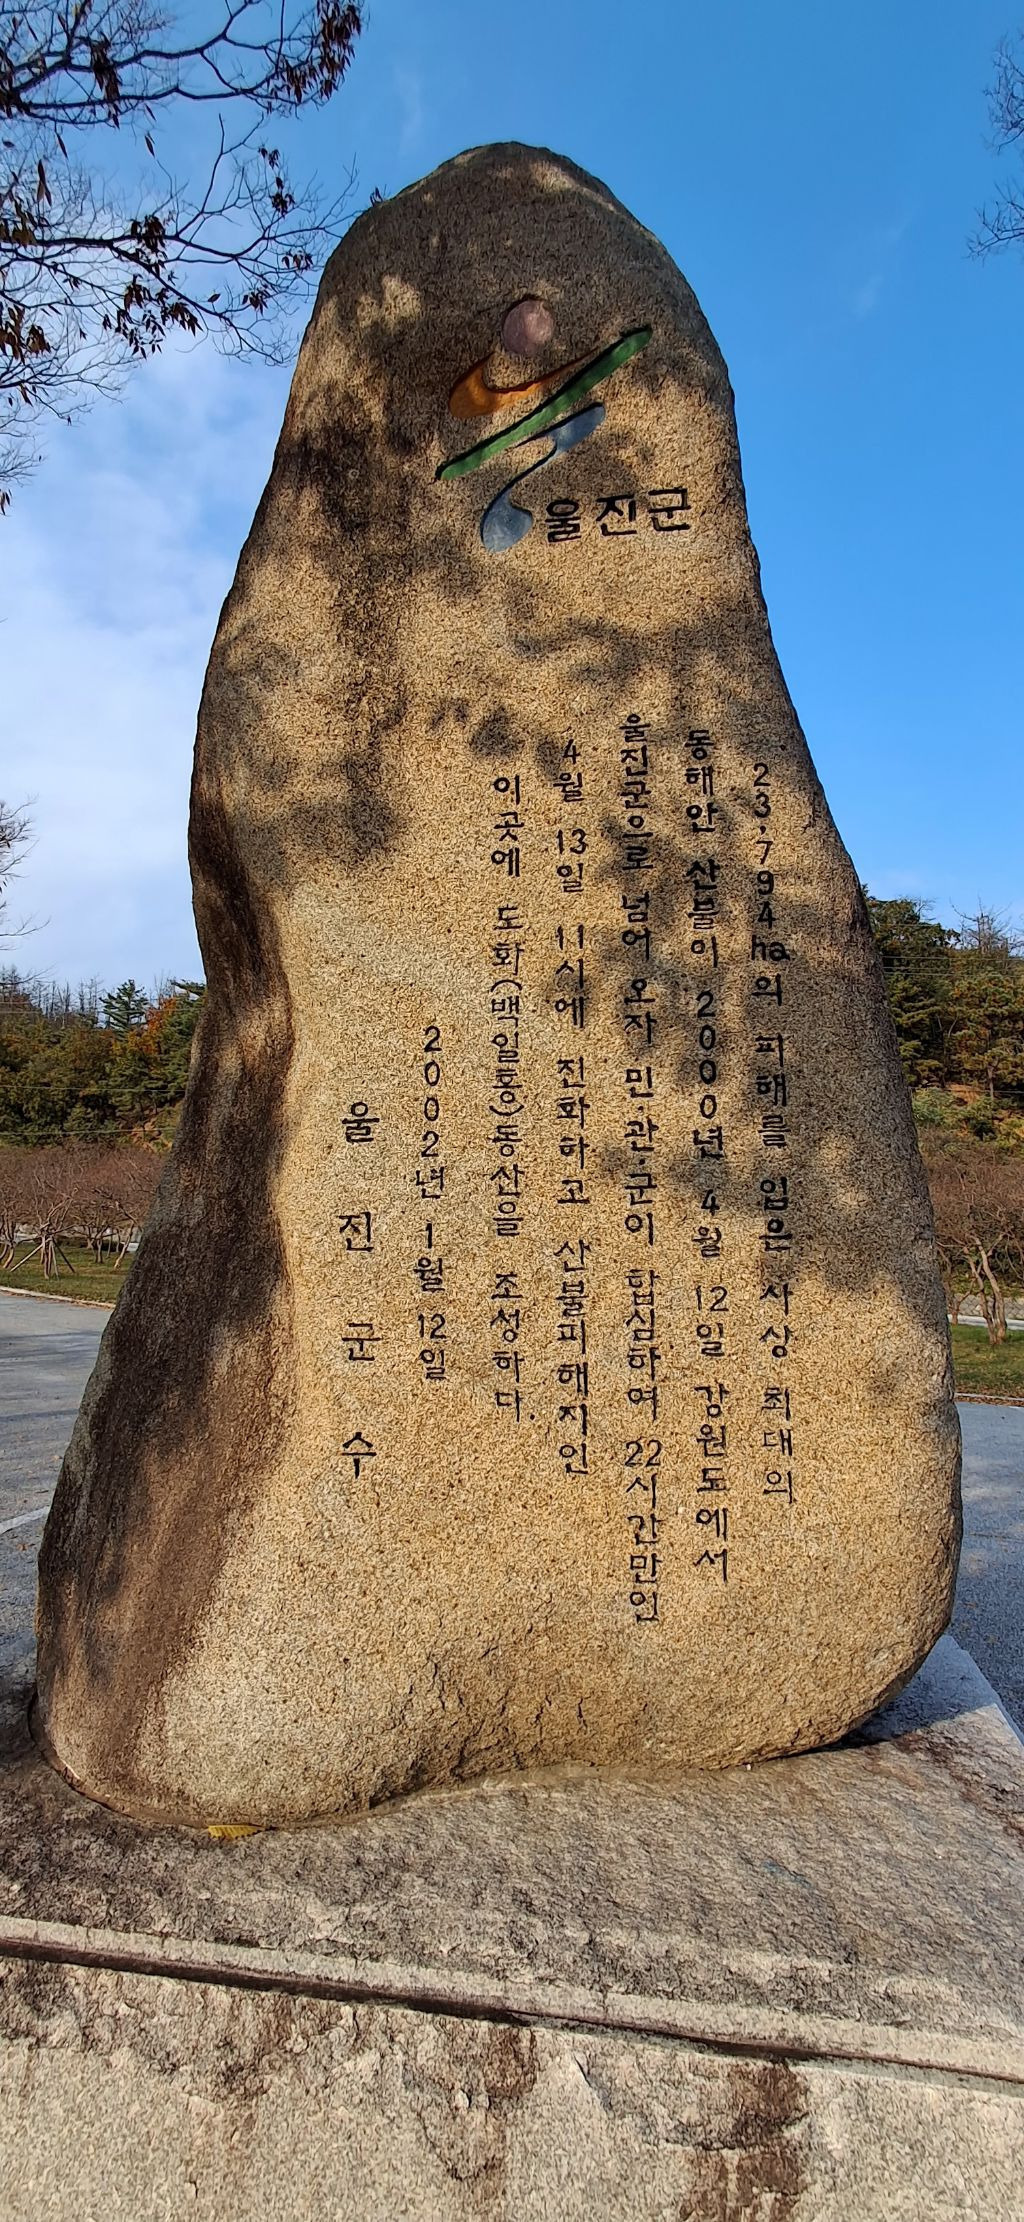 울진군
23,794ha의 피해를 입은 사상 최대의
동해안 산불이 2000년 4월 12일 강원도에서
울진군으로 넘어 오자 민.관.군이 합심하여 22시간만인
4월 13일 11시에 진화하고 산불피해지인
이곳에 도화(백일홍)동산을 조성하다.
2002년 1월 12일
울진군수